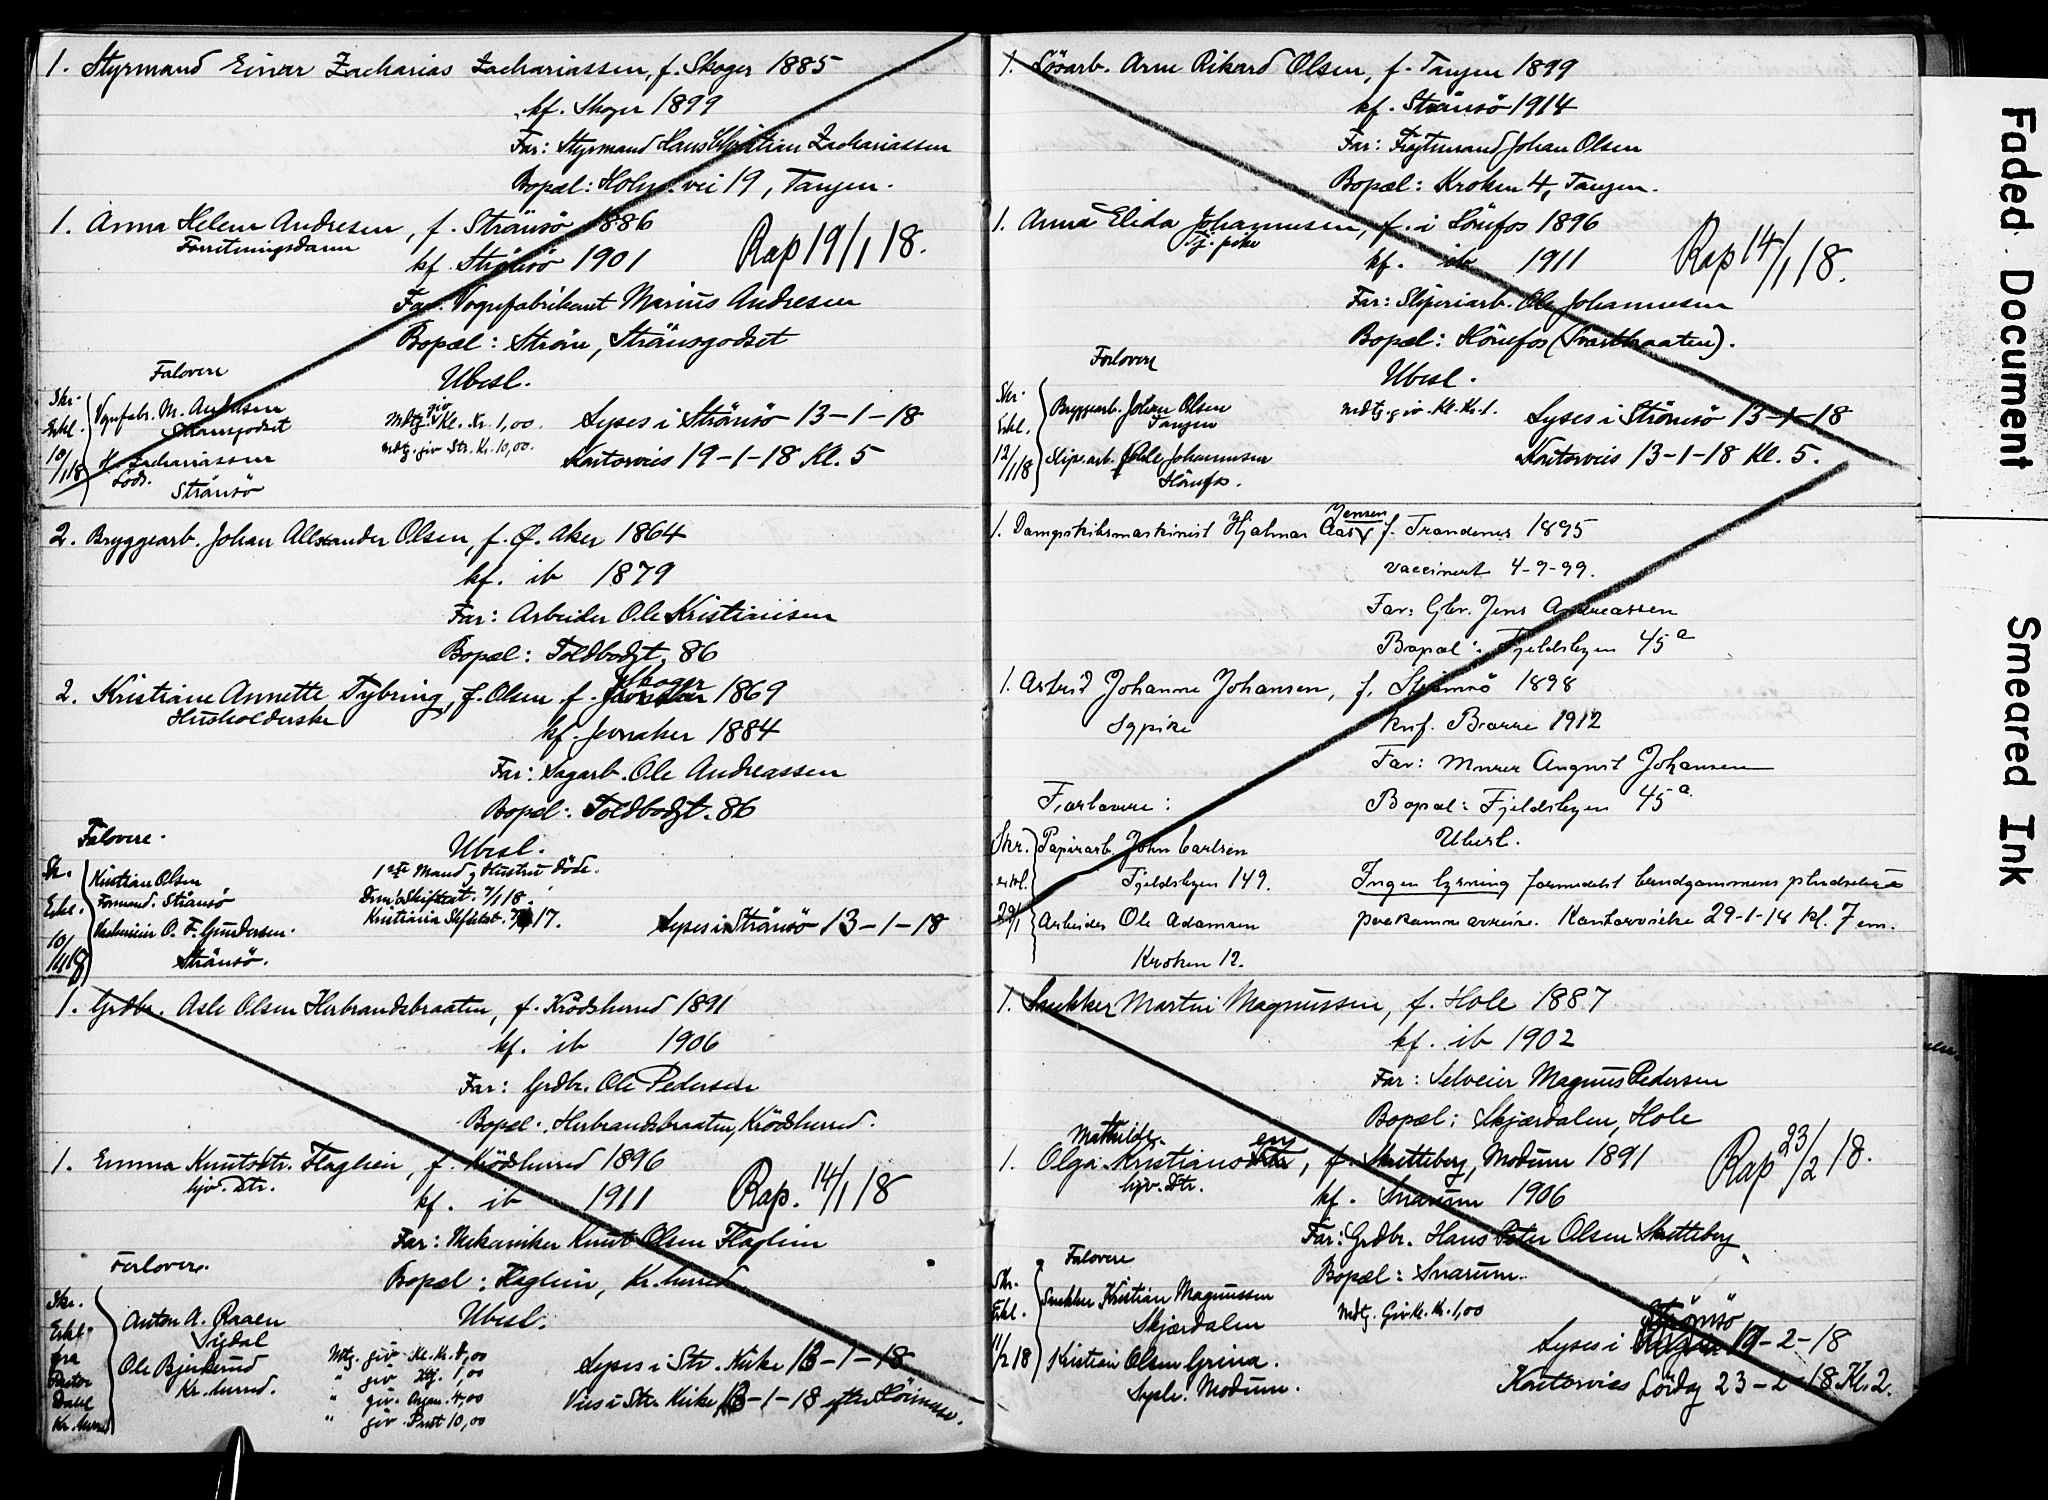 1. Styrmand Einar Zacharias Zachariassen, f. Skoger 1885
kf. Skoger 1899
Far: Styrmand Hans Christian Zachariassen
Bopæl: Holm. vei 19, Tangen.
1. Anna Helene Andresen, f. Strömsö 1886
Forretningsdame
kf. Strömsö 1901
Rap 19/1 18.
Far: Vognfabrikant Marius Andresen
Bopæl: Ström, Strömsgodset
Ubesl.
Forlovere
Skr. Erkl. 10/1 18
Vognfabr. M. Andresen
Strömsgodset
H. Zachariassen
Lods. Strömsö
Mdtg. giv Kl. Kr. 1,00.
mdtg. giv Str. Kr. 10,00.
Lyses i Strömsö 13-1-18
Kontorvies 19-1-18 Kl. 5
2. Bryggearb. Johan Alexander Olsen, f. Ø. Aker 1864
kf. ib 1879
Far: Arbeider Ole Kristiansen
Bopæl: Toldbodgt. 86
2. Kristiane Annette Tybring, f. Olsen f. Skoger 1869
Husholderske
kf. Jevnaker 1884
Far: Sagarb. Ole Andreassen
Bopæl: Toldbodgt. 86
Forlovere.
Ubesl.
Skr. Erkl. 10/1 18
Kristian Olsen
Formand. Strömsö
O. F. Gundersen.
Strömsö.
1ste Mand og Hustru döde.
Dram. Skiftret. 7/1 18.
Kristiania Skifteret. 17.
Lyses i Strömsö 13-1-18
1. Grdbr. Asle Olsen Herbrandsbraaten, f. Krödsherred 1891
kf. ib 1906
Far: Grdbr. Ole Pedersen
Bopæl: Herbrandsbraaten, Krödsherred.
1. Emma Knutsdtr. Flaglien, f. Krödsherred 1896
hjv. Dtr.
kf. ib 1911
Rap. 14/1 18
Far: Mekaniker Knut Olsen Flaglien
Bopæl: Flaglien, Kr. herred
Ubesl.
Forlovere.
Skr. Erkl. fra Pastor Dahl Kr. herred
Anton A. Raaen
Sigdal
Ole Bjerkerud
Kr. herred.
Mtg. giv. Kl. Kr. 1,00
" giv 1,00
" giv. Organ. 4,00
" giv. Prest 10,00
Lyses i Str. Kirke 13-1-18
Vies i Str. Kirke 13-1-18 efter Höimesse.
1. Arne Rikard Olsen, f. Tangen 1899
kf. Strömsö 1914
Far: Johan Olsen
Bopæl: Kroken 4, Tangen.
1. Anna Elida Johannesen, f. i Hönefos 1896
Tj. pike
kf. ib 1911
Rap 14/1 18.
Far: Sliperiarb. Ole Johannesen
Bopæl: Hönefos (Svartbraaten).
Forlovere
Ubesl.
Skr. Erkl. 12/1 18
Bryggearb. Johan Olsen
Tangen
Slipe.arb. Ole Johannesen
Hönefos.
Mdtg. giv. Kl. Kr. 1.
Lyses i Strömsö 13-1-18
Kontorvies 13-1-18 Kl. 5.
1. Dampskibsmaskinist Hjalmar Aas Jensen f. Trandenes 1895
vaccinert 4-9-99.
Far: Gbr. Jens Andreassen
Bopæl: Fjeldsbyen 45a
1. Astrid Johanne Johansen, f. Strömsö 1898
Sypike
knf. Borre 1912
Far: Murer August Johansen
Bopæl: Fjeldsbyen 45a
Forlovere:
Ubesl.
Skr. erkl. 29/1
Papirarb. John Carlsen
Fjeldsbyen 149.
Arbeider Ole Adamsen
Kroken 12.
Ingen lysning formedelst brudgommens pludselige
paakomne avreise. Kontorvielse 29-1-18 kl. 7 em.
1. Snekker Martin Magnussen, f. Hole 1887
kf. ib 1902
Far: Selveier Magnus Pedersen
Bopæl: Skjærdalen, Hole
1. Olga Mathilde Kristiansen, f. Skretteberg, Modum 1891
hjv. Dtr.
kf. Snarum 1906
Rap 23/2 18.
Far: Grdbr. Hans Peter Olsen Skretteberg
Bopæl: Snarum.
Forlovere
Skr. Erkl. 11/2 18
Snekker Kristian Magnussen
Skjærdalen
Kristian Olsen Grina.
Sysle. Modum.
Mdtg. Giv Kl. Kr. 1,00
Lyses i Strömsö 17-2-18
Kontorvies Lördag 23-2-18 Kl. 2.
Faded Document
Smeared Ink